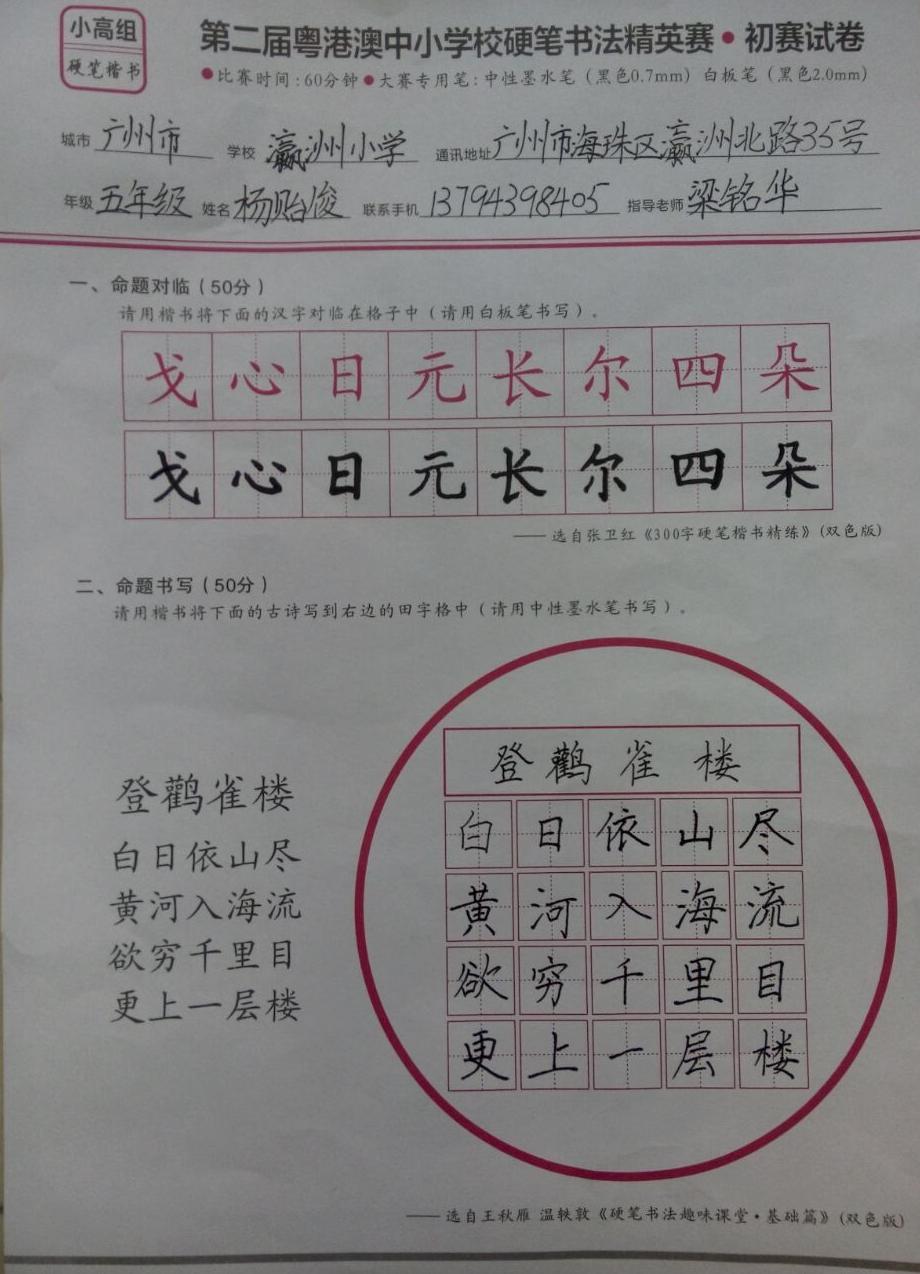 小高组
硬笔楷书
第二届粤港澳中小学校硬笔书法精英赛•初赛试卷
●比赛时间:60分钟●大赛专用笔:中性墨水笔(黑色0.7mm) 白板笔(黑色2.0mm)
城市 广州市 学校 瀛洲小学 通讯地址 广州市海珠区瀛洲北路35号
年级 五年级 姓名 杨贻俊 联系手机 13794398405 指导老师 梁铭华
一、命题对临(50分)
请用楷书将下面的汉字对临在格子中(请用白板笔书写)。
戈心日元长尔四朵
戈心日元长尔四朵
——选自张卫红《300字硬笔楷书精练》(双色版)
二、命题书写(50分)
请用楷书将下面的古诗写到右边的田字格中(请用中性墨水笔书写)。
登鹳雀楼
白日依山尽
黄河入海流
欲穷千里目
更上一层楼
登鹳雀楼
白日依山尽
黄河入海流
欲穷千里目
更上一层楼
——选自王秋雁 温轶敦《硬笔书法趣味课堂·基础篇》(双色版)